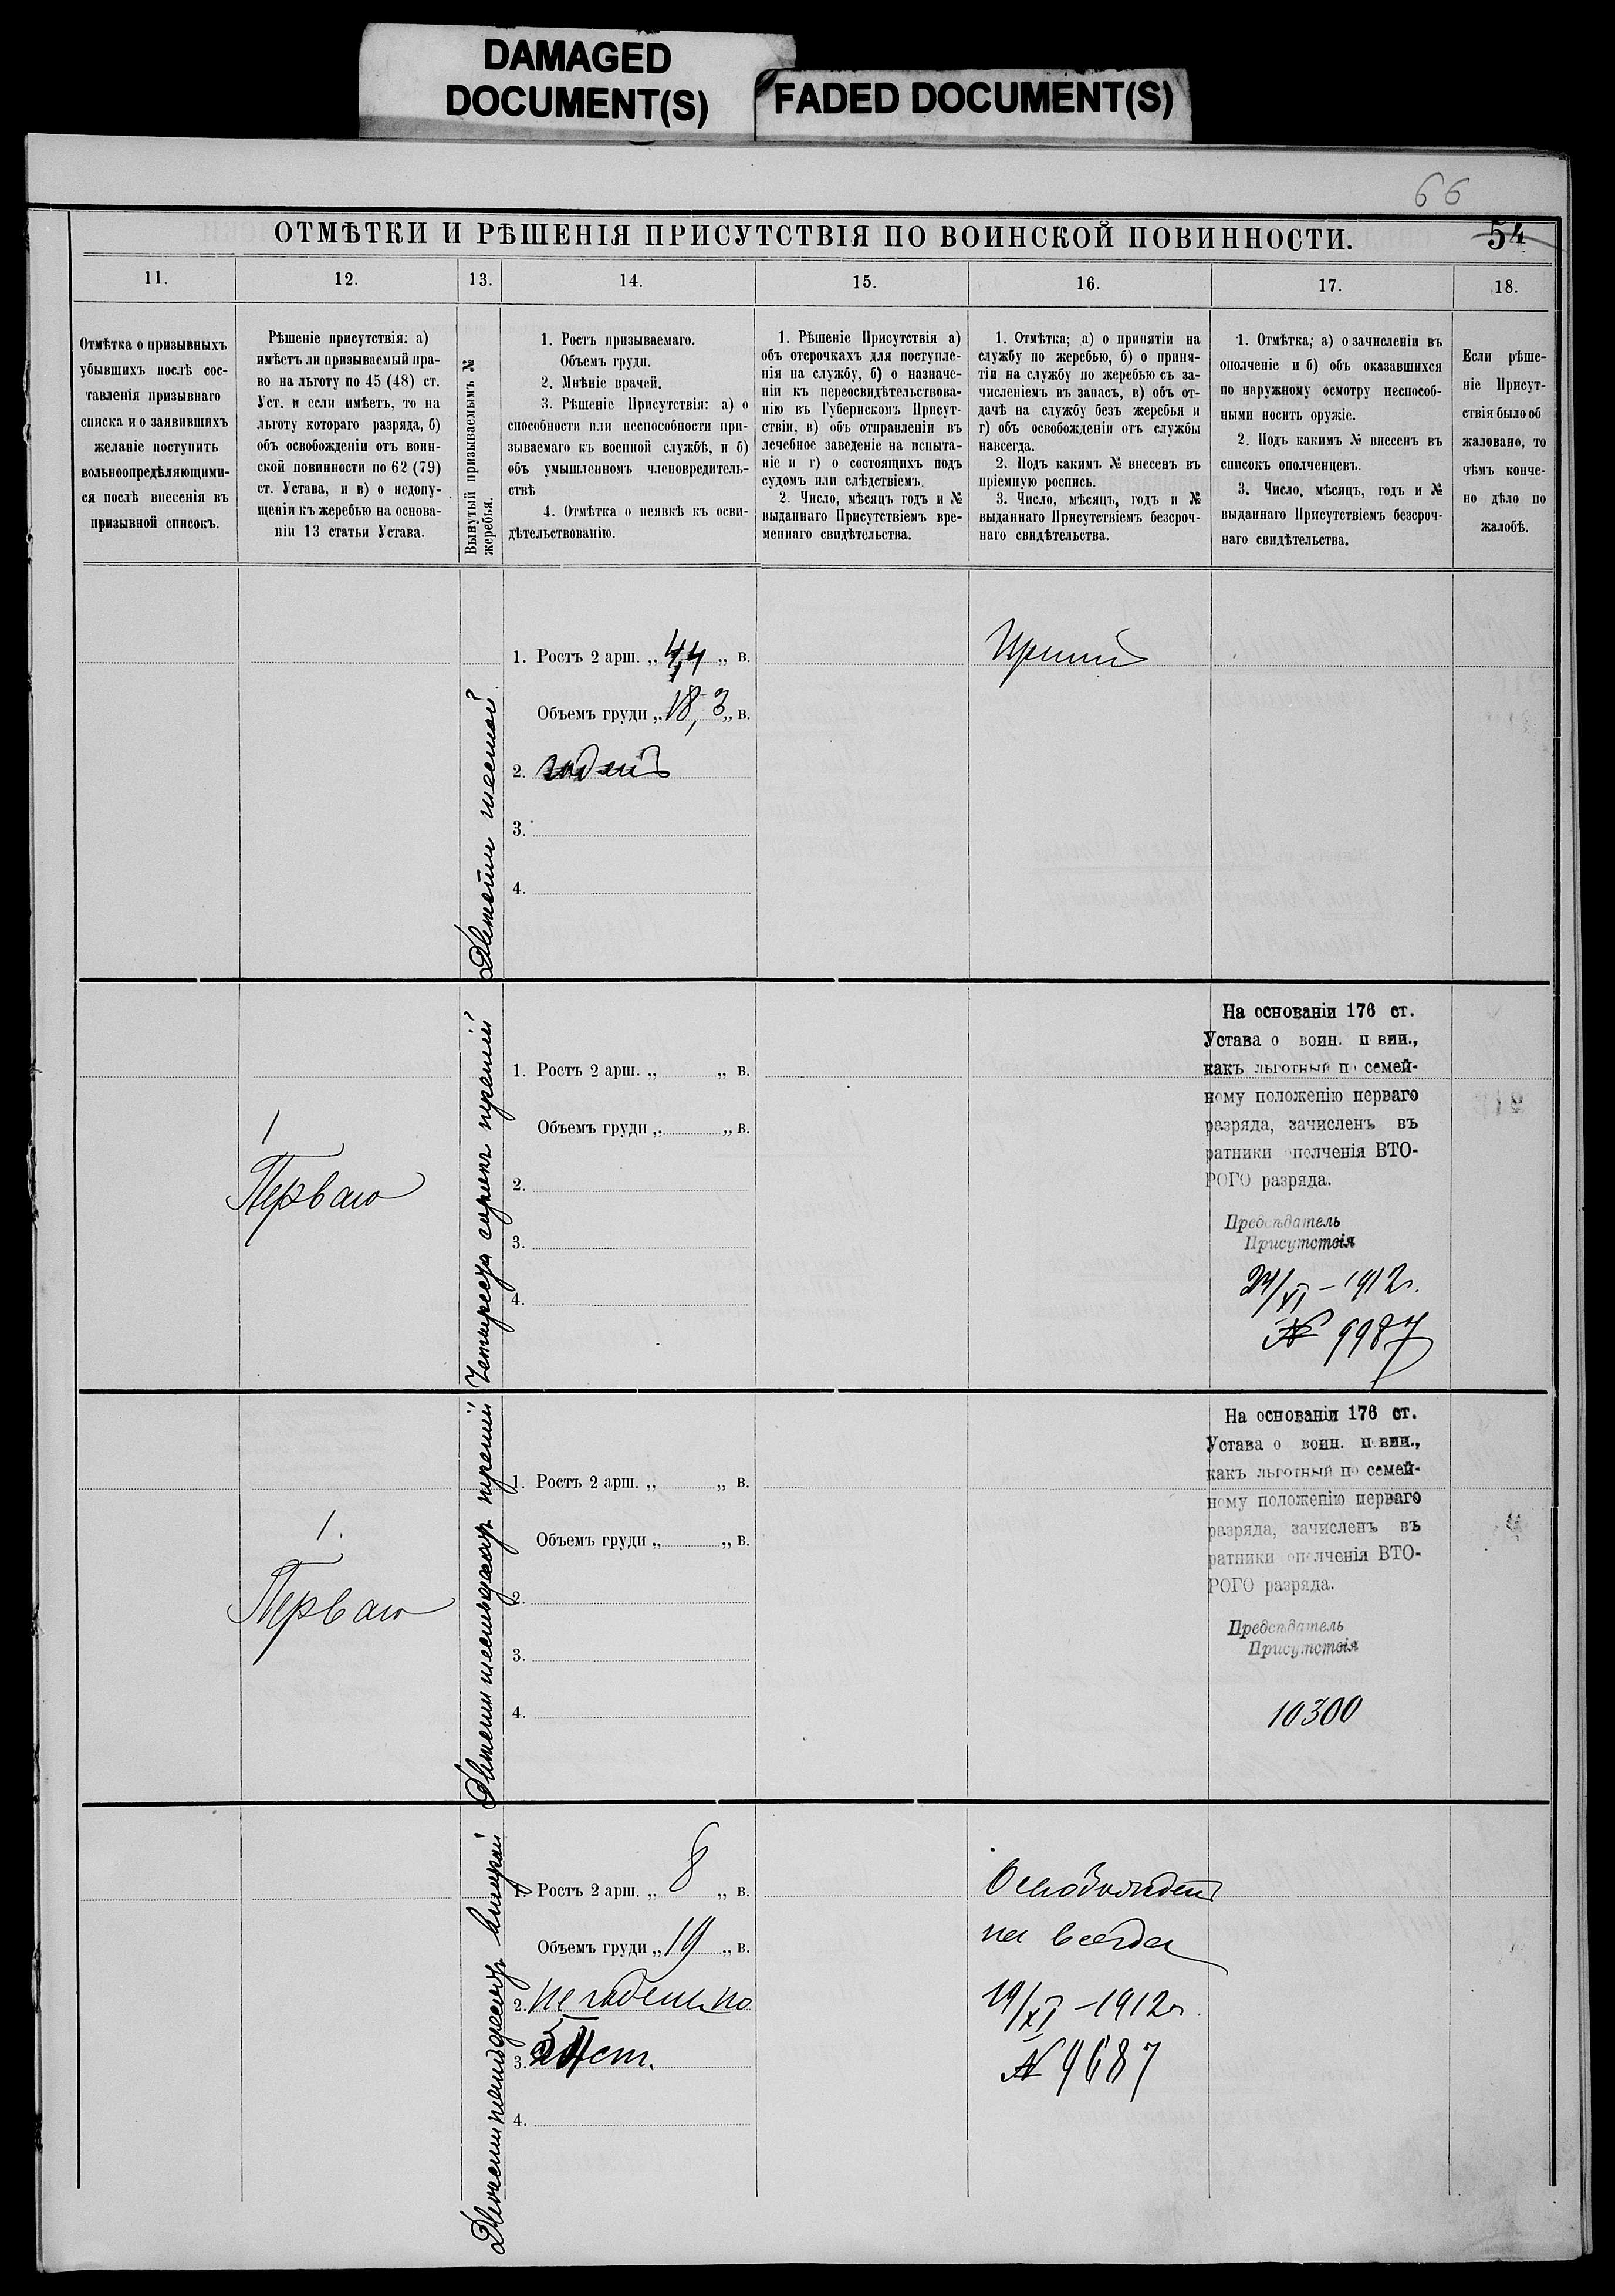 DAMAGED
DOCUMENT(S)
FADED DOCUMENT(S)
66
ОТМѢТКИ И РѢШЕНІЯ ПРИСУТСТВІЯ ПО ВОИНСКОЙ ПОВИННОСТИ.
54
11.
12.
13.
14.
15.
16.
17.
18.
Отмѣтка о призывныхъ
убывшихъ послѣ сос-
тавленія призывнаго
списка и о заявившихъ
желаніе поступить
вольноопредѣляющими-
ся послѣ внесенія въ
призывной списокъ.
Рѣшеніе присутствія: а)
имѣетъ ли призываемый пра-
во на льготу по 45 (48) ст.
Уст. и если имѣетъ, то на
льготу котораго разряда, б)
объ освобожденіи отъ воин-
ской повинности по 62 (79)
ст. Устава, и в) о недопу-
щеніи къ жеребью на основа-
ніи 13 статьи Устава.
Вынутый призываемымъ №
жеребья.
1. Ростъ призываемаго.
Объемъ груди.
2. Мнѣніе врачей.
3. Рѣшеніе Присутствія: а) о
способности или неспособности при-
зываемаго къ военной службѣ, и б)
объ умышленномъ членовредитель-
ствѣ
4. Отмѣтка о неявкѣ къ осви-
дѣтельствованію.
1. Рѣшеніе Присутствія а)
объ отсрочкахъ для поступле-
нія на службу, б) о назначе-
ніи къ переосвидѣтельствова-
нію въ Губернскомъ Присут-
ствіи, в) объ отправленіи въ
лечебное заведеніе на испыта-
ніе и г) о состоящихъ подъ
судомъ или слѣдствіемъ.
2. Число, мѣсяцъ годъ и №
выданнаго Присутствіемъ вре-
меннаго свидѣтельства.
1. Отмѣтка; а) о принятіи на
службу по жеребью, б) о приня-
тіи на службу по жеребью съ за-
численіемъ въ запасъ, в) объ от-
дачѣ на службу безъ жеребья и
г) объ освобожденіи отъ службы
навсегда.
2. Подъ какимъ № внесенъ въ
пріемную роспись.
3. Число, мѣсяцъ, годъ и №
выданнаго Присутствіемъ безсроч-
наго свидѣтельства.
1. Отмѣтка; а) о зачисленіи въ
ополченіе и б) объ оказавшихся
по наружному осмотру неспособ-
ными носить оружіе.
2. Подъ какимъ № внесенъ въ
списокъ ополченцевъ.
3. Число, мѣсяцъ, годъ и №
выданнаго Присутствіемъ безсроч-
наго свидѣтельства.
Если рѣше-
ніе Присут-
ствія было об
жаловано, то
чѣмъ конче-
но дѣло по
жалобѣ.
Двѣсти шестой
1. Ростъ 2 арш. „ 4,4 „ в.
Объемъ груди „ 18,3 „ в.
2. годенъ
3.
4.
1
Перваго
Четыреста сорокъ третій
1. Ростъ 2 арш. „ „ в.
Объемъ груди „ „ в.
2.
3.
4.
На основаніи 176 ст.
Устава о воин. повин.,
какъ льготный по семей-
ному положенію перваго
разряда, зачисленъ въ
ратники ополченія ВТО-
РОГО разряда.
Предсѣдатель
Присутствія
24/XI – 1912 г.
№ 9987
1.
Перваго
Двѣсти шестьдесятъ третій
1. Ростъ 2 арш. „ „ в.
Объемъ груди „ „ в.
2.
3.
4.
На основаніи 176 ст.
Устава о воин. повин.,
какъ льготный по семей-
ному положенію перваго
разряда, зачисленъ въ
ратники ополченія ВТО-
РОГО разряда.
Предсѣдатель
Присутствія
10300
Двѣсти пятьдесятъ второй
1. Ростъ 2 арш. „ 8 „ в.
Объемъ груди „ 19 „ в.
2. не годенъ по
3. ст.
4.
Освобожденъ
на всегда
19/XI – 1912 г.
№ 9687